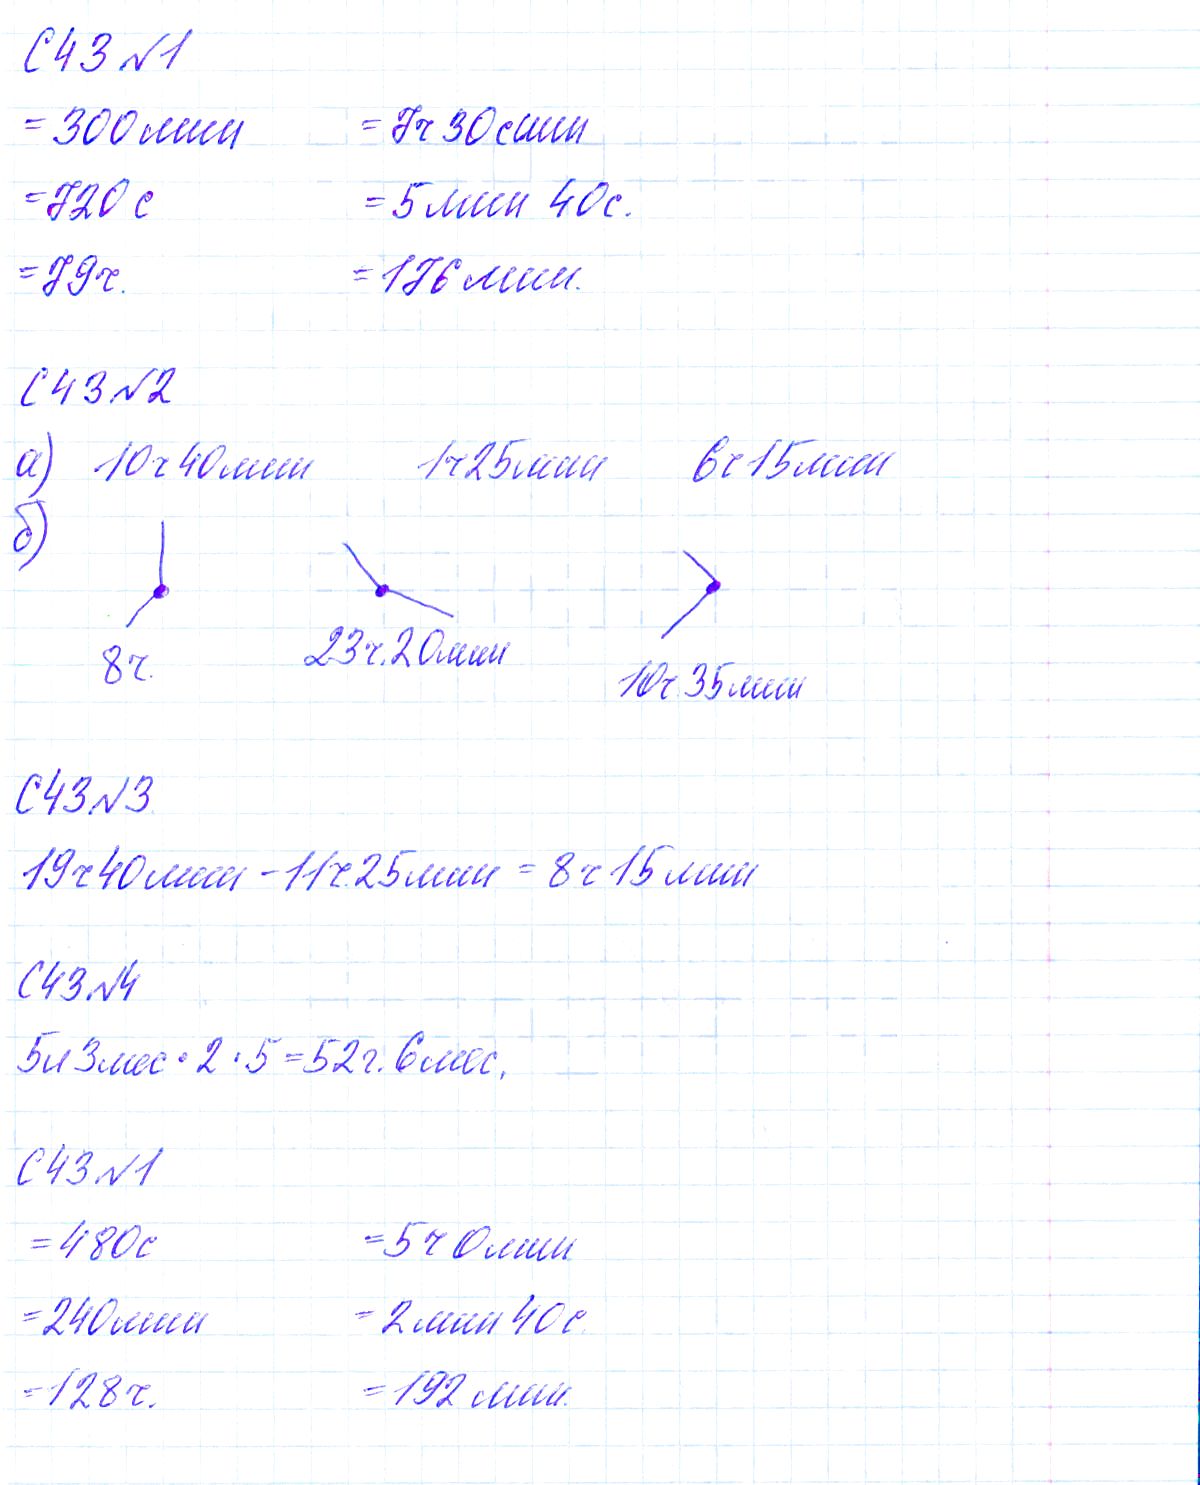 С43 №1
=300мин =7ч 30 мин
=720 с =5мин 40с.
=79ч. =176мин.
С43 №2
а) 10ч40мин 1ч25мин 6ч15мин
б)
8ч. 23ч.20мин 10ч.35мин
С43 №3
19ч40мин - 11ч.25мин = 8ч 15мин
С43 №4
5л 3мес · 2 · 5 = 52г. 6мес.
С43 №1
=480с =5ч 0мин
=240мин =2мин 40с.
=128ч. =192 мин.